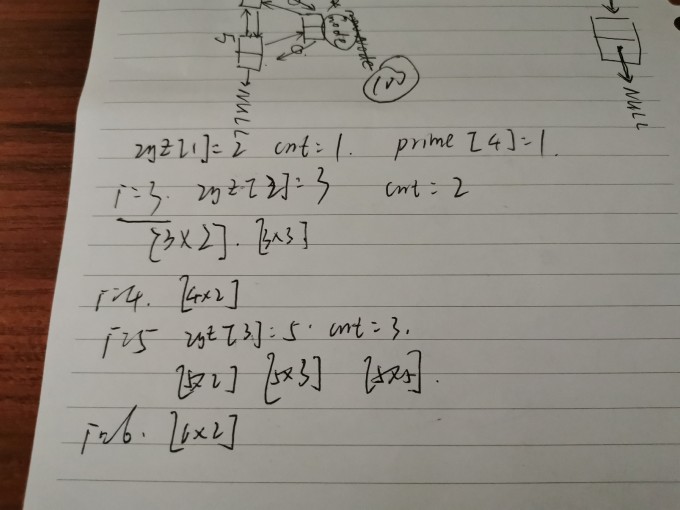 5
NULL
Node
NULL
zyz[1]=2 cnt=1. prime[4]=1.
i=3. zyz[2]=3 cnt=2
[3×2]. [3×3]
i=4. [4×2]
i=5 zyz[3]=5. cnt=3.
[5×2] [5×3] [5×5].
i=6. [6×2]